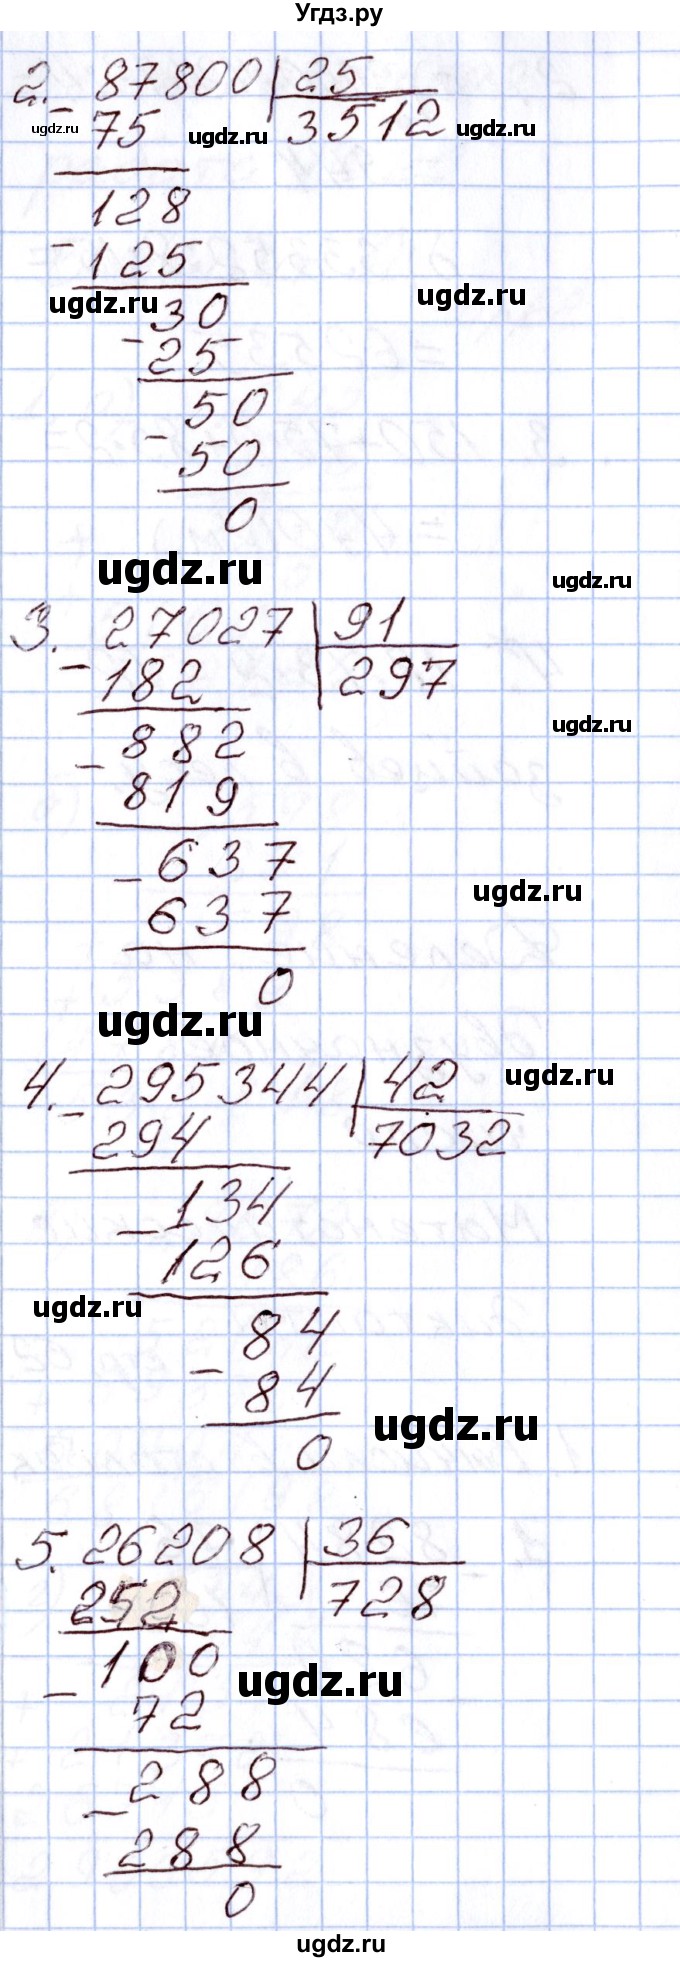 Угдз.ру
2. 87800 | 25
- 75 3512
ugdz.ru ugdz.ru ugdz.ru
128
- 125
ugdz.ru ugdz.ru
30
- 25
50
- 50
0
ugdz.ru ugdz.ru
3. 27027 | 91
- 182 297
ugdz.ru
- 882
819
- 637
ugdz.ru
637
0
ugdz.ru
4. 295344 | 42
ugdz.ru
- 294 7032
- 134
126
ugdz.ru
84
- 84
ugdz.ru
0
5. 26208 | 36
252 728
- 100
ugdz.ru
72
- 288
288
0
ugdz.ru